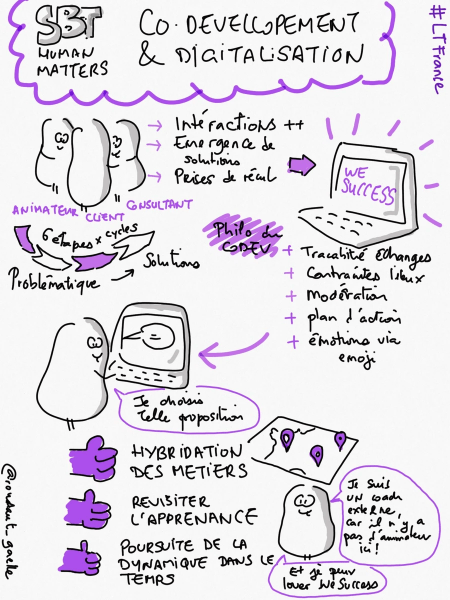 SBT
HUMAN
MATTERS
CO-DEVELLOPEMENT
& DIGITALISATION
#LTFrance
→ Intéractions ++
→ Emergence de
solutions
→ Prises de recul
WE
SUCCESS
ANIMATEUR
CLIENT
CONSULTANT
6 étapes x cycles
Problématique → Solutions
Philo du
CODEV
+ Tracabilité échanges
+ Contraintes lieux
+ Modération
+ plan d'action
+ émotions via
emoji
Je choisis
telle proposition
HYBRIDATION
DES METIERS
REVISITER
L'APPRENANCE
POURSUITE DE LA
DYNAMIQUE DANS LE
TEMPS
Je suis
un coach
externe,
car il n'y a
pas d'animateur
ici !
Et je peux
louer WeSuccess